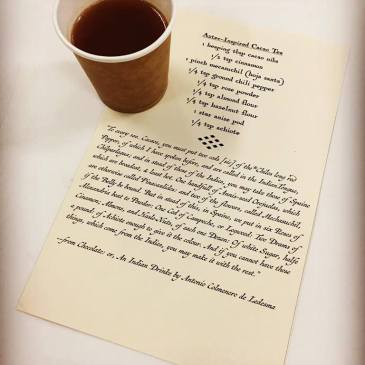 Aztec-Inspired Cacao Tea
1 heeping tbsp cacao nibs
1/2 tsp cinnamon
1 pinch mecaxuchil (hoja santa)
1/4 tsp ground chili pepper
1/4 tsp rose powder
1/4 tsp almond flour
1/4 tsp hazelnut flour
1 star anise pod
1/4 tsp achiote
"To every 100. Cacaos, you must put two cods [sic] of the Chiles long red
Pepper, of which I have spoken before, and are called in the Indian Tongue,
Chilparlagua; and in stead of those of the Indies, you may take those of Spaine
which are broadest, & least hot. One handfull of Annis-seed Orejuelas, which
are otherwise called Pinacaxlidos: and two of the flowers, called Mechasuchil,
if the Belly be bound. But in stead of this, in Spaine, we put in sixe Roses of
Alexandria beat to Powder: One Cod of Campeche, or Logwood: Two Drams of
Cinamon; Almons, and Hasle-Nuts, of each one Dozen: Of white Sugar, halfe
a pound: of Achiote enough to give it the colour. And if you cannot have those
things, which come from the Indies, you may make it with the rest."
from Chocolate: or, An Indian Drinke by Antonio Colmenero de Ledesma